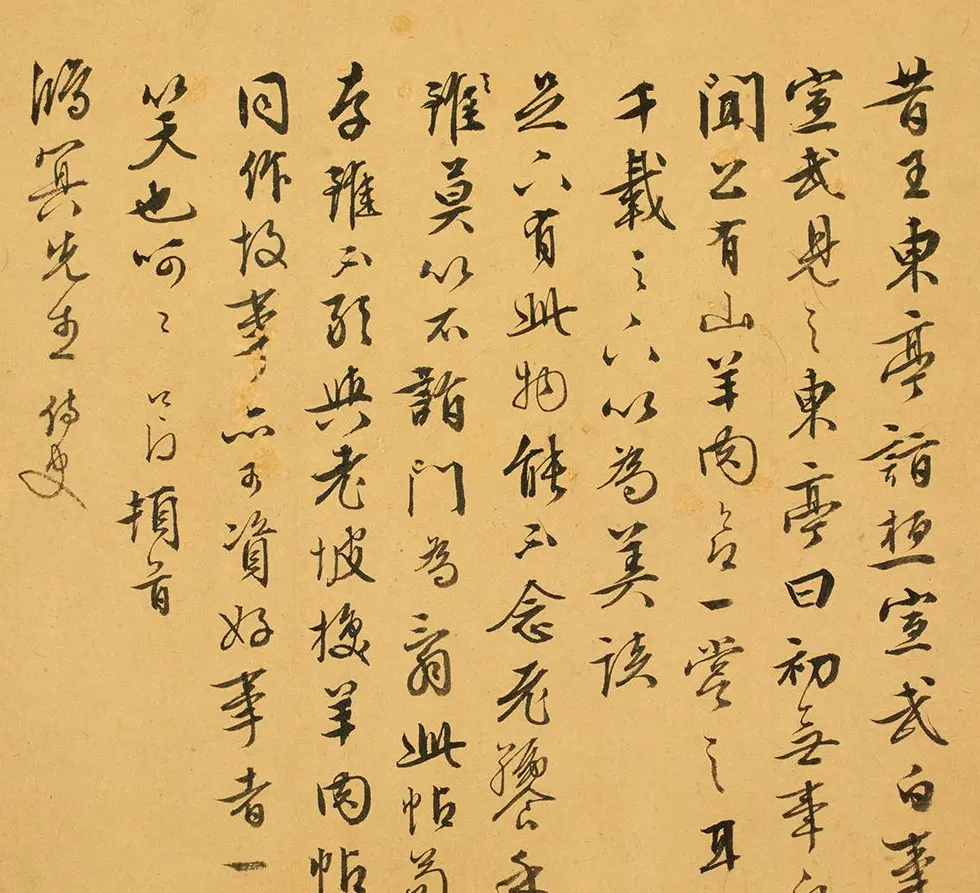 昔王東亭詣桓宣武白事
宣武見之東亭曰初無事
聞公有山羊肉一嘗之耳
千載之下以為美談
足下有此物能不念老饕
雖莫以不詣門為此帖苟
存雖不敢與老坡換羊肉帖
同作故事亦可資好事者一
笑也呵呵 頓首
鴻冥先生 侍史